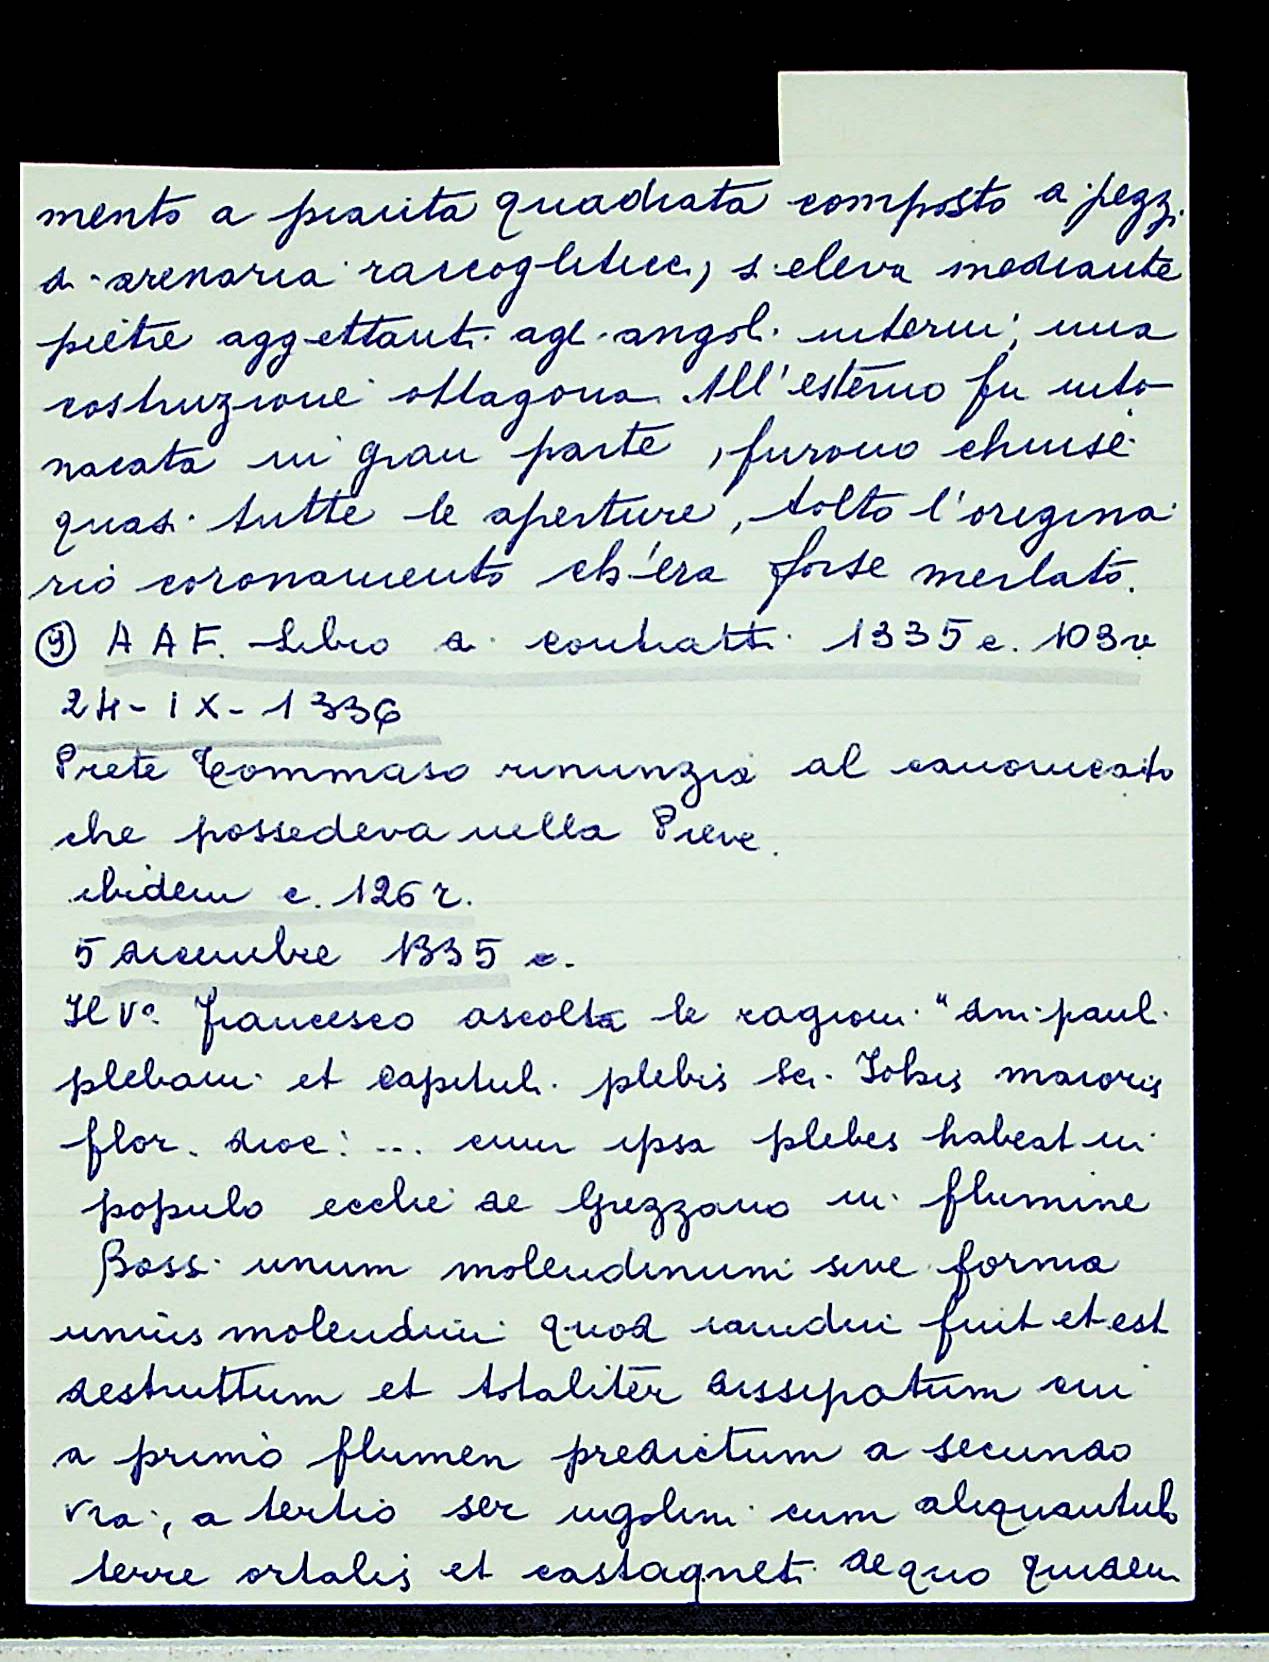 mento a pianta quadrata composto a pezzi
di arenaria raccogliticci, s'eleva mediante
pietre aggettanti agli angoli interni, una
costruzione ottagona. All'esterno fu into-
nacata in gran parte, furono chiuse
quasi tutte le aperture, tolto l'origina
rio coronamento ch'era forse merlato.
⑨ A A F. Libro di contratti 1335 c. 103 v
24 - IX - 1336
Prete Tommaso rinunzia al canonicato
che possedeva nella Pieve.
ibidem c. 126 r.
5 dicembre 1335 c.
Il Vº Francesco ascolta le ragioni "dni pauli
plebani et capituli plebis Sci Iohis maioris
flor. dioc: ... cum ipsa plebes habeat in
populo ecclie de Grezzano in flumine
Bossi unum molendinum sive forma
unius molendini quod iamdiu fuit et est
destruttum et totaliter dissipatum cui
a primo flumen predictum a secundo
via, a tertio ser ugolini cum aliquantulo
terre ortalis et castagneti de quo quidem